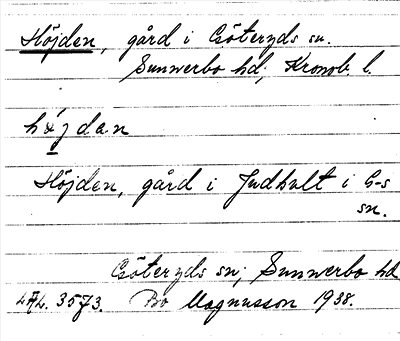 Höjden, gård i Göteryds sn.
Sunnerbo hd; Kronob. l.
Höjden, gård i Judhult i G-s
sn.
Göteryds sn; Sunnerbo hd
3573. Bo Magnusson 1938.